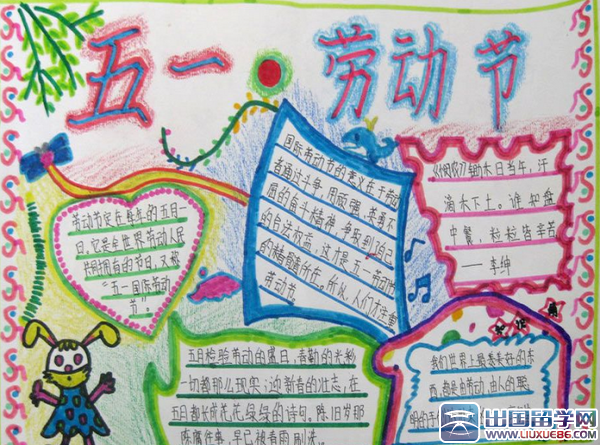 五一·劳动节
劳动节定在每年的五月一
日,它是全世界劳动人民
共同拥有的节日,又称
"五一国际劳动
节"。
国际劳动节的意义在于劳动
者通过斗争,用顽强、英勇不
屈的奋斗精神,争取到自己
的合法权益,这才是五一劳动节
的精髓所在。所以,人们才注重
劳动节。
《悯农》锄禾日当午,汗
滴禾下土。谁知盘
中餐,粒粒皆辛苦
——李绅
五月检验劳动的盛日,春勤的光彩
一切都那么现实;迎新春的壮志,在
五月都长成花花绿绿的诗句。陈旧岁那
陈腐往事,早已被春雨刷洗。
我们世界上最美好的东
西,都是由劳动、由人的聪
出国留学网
www.liuxue86.com